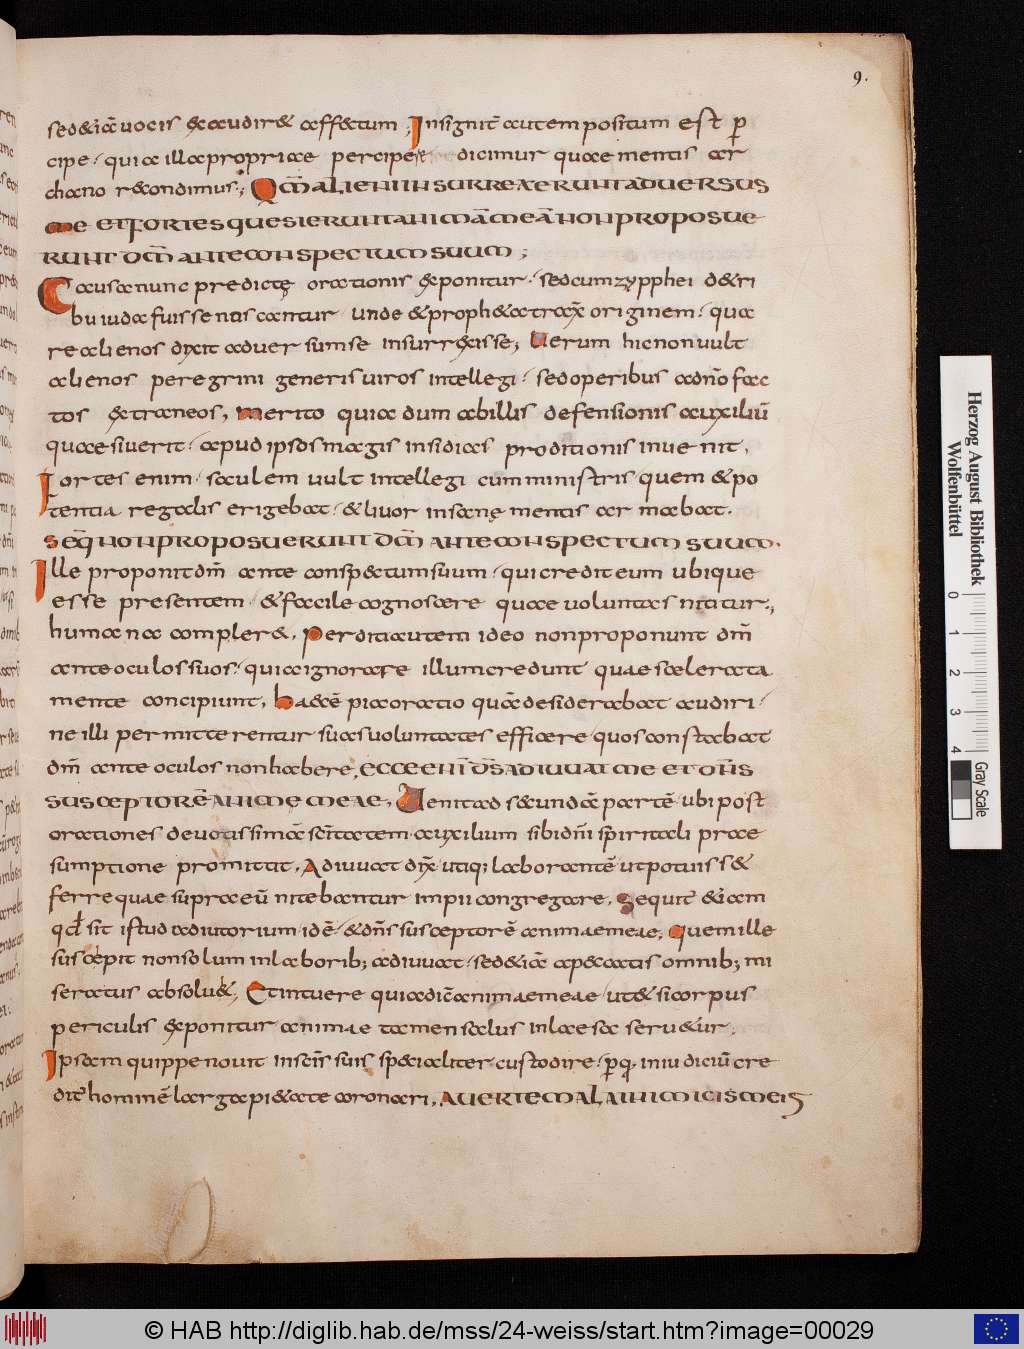 9.
sed & iā uocis & exaudir& aff&tum; Insignit̄ autem positum est p̄
cipe. quia illa propriae percipere dicimur quae mentis ar
chano r&condimus; Qm̄ ALIENI INSURREXERUNT ADUERSUS
ME ET FORTES QUESIERUNT ANIMĀ MEĀ NON PROPOSUE
RUNT DM̄ ANTE CONSPECTUM SUUM;
Causa nunc predictę orationis exponitur. sed cum zypphei d& ri
bu iuda fuisse noscantur unde & proph&a traxx̄ originem. qua
re alienos dixit aduersum se insurrexisse; Uerum hic non uult
alienos peregrini generis uiros intellegi. sed operibus a dn̄o fac
tos extraneos; merito quia dum ab illis defensionis auxiliū
quaesiuerit. apud ipsos magis insidias proditionis inuenit.
Fortes enim. saulem uult intellegi cum ministris quem & po
tentia regalis erigebat. & liuor insanę mentis armabat.
SEQ̄ NON PROPOSUERUNT DM̄ ANTE CONSPECTUM SUUM.
Ille proponit dm̄ ante conspectum suum. qui credit eum ubique
esse presentem. & facile cognoscere quae uoluntas nititur;
humana compler&. Perditi autem ideo non proponunt dm̄
ante oculos suos. quia ignorare illum credunt quae scelerata
mente concipiunt. haec ē pia oratio quā desiderabat audiri.
ne illi permitterentur suas uoluntates efficere quos constabat
dm̄ ante oculos non habere. ECCE ENĪ DS̄ ADIUUAT ME ET DN̄S
SUSCEPTOR Ē ANIMĘ MEAE. Uenit ad s&undā partē ubi post
orationes deuotissimā sc̄itatem auxilium sibi dn̄i spiritali prae
sumptione promittit. Adiuuat dix̄ utiq; laborantē ut potuiss&
ferre quae supra eū nitebantur impii congregare. Sequit̄ & iam
qd̄ sit istud adiutorium idē & dn̄s susceptor ē animae meae. Quem ille
suscepit non solum in laborib; adiuuat. sed & iā a peccatis omnib; mi
seratus absolu&; Et intuere quia dic̄ animae meae ut & si corpus
periculis exponitur animae tamen salus inlaesa seru&ur.
Ipsam quippe nouit in sc̄is suis specialiter custodire. p̄ q̄ in iudiciū cre
dit̄ hominē largapi&ate coronari. AUERTE MALA INIMICIS MEIS
Herzog August Bibliothek
Wolfenbüttel
0 1 2 3 4
Gray Scale
© HAB http://diglib.hab.de/mss/24-weiss/start.htm?image=00029